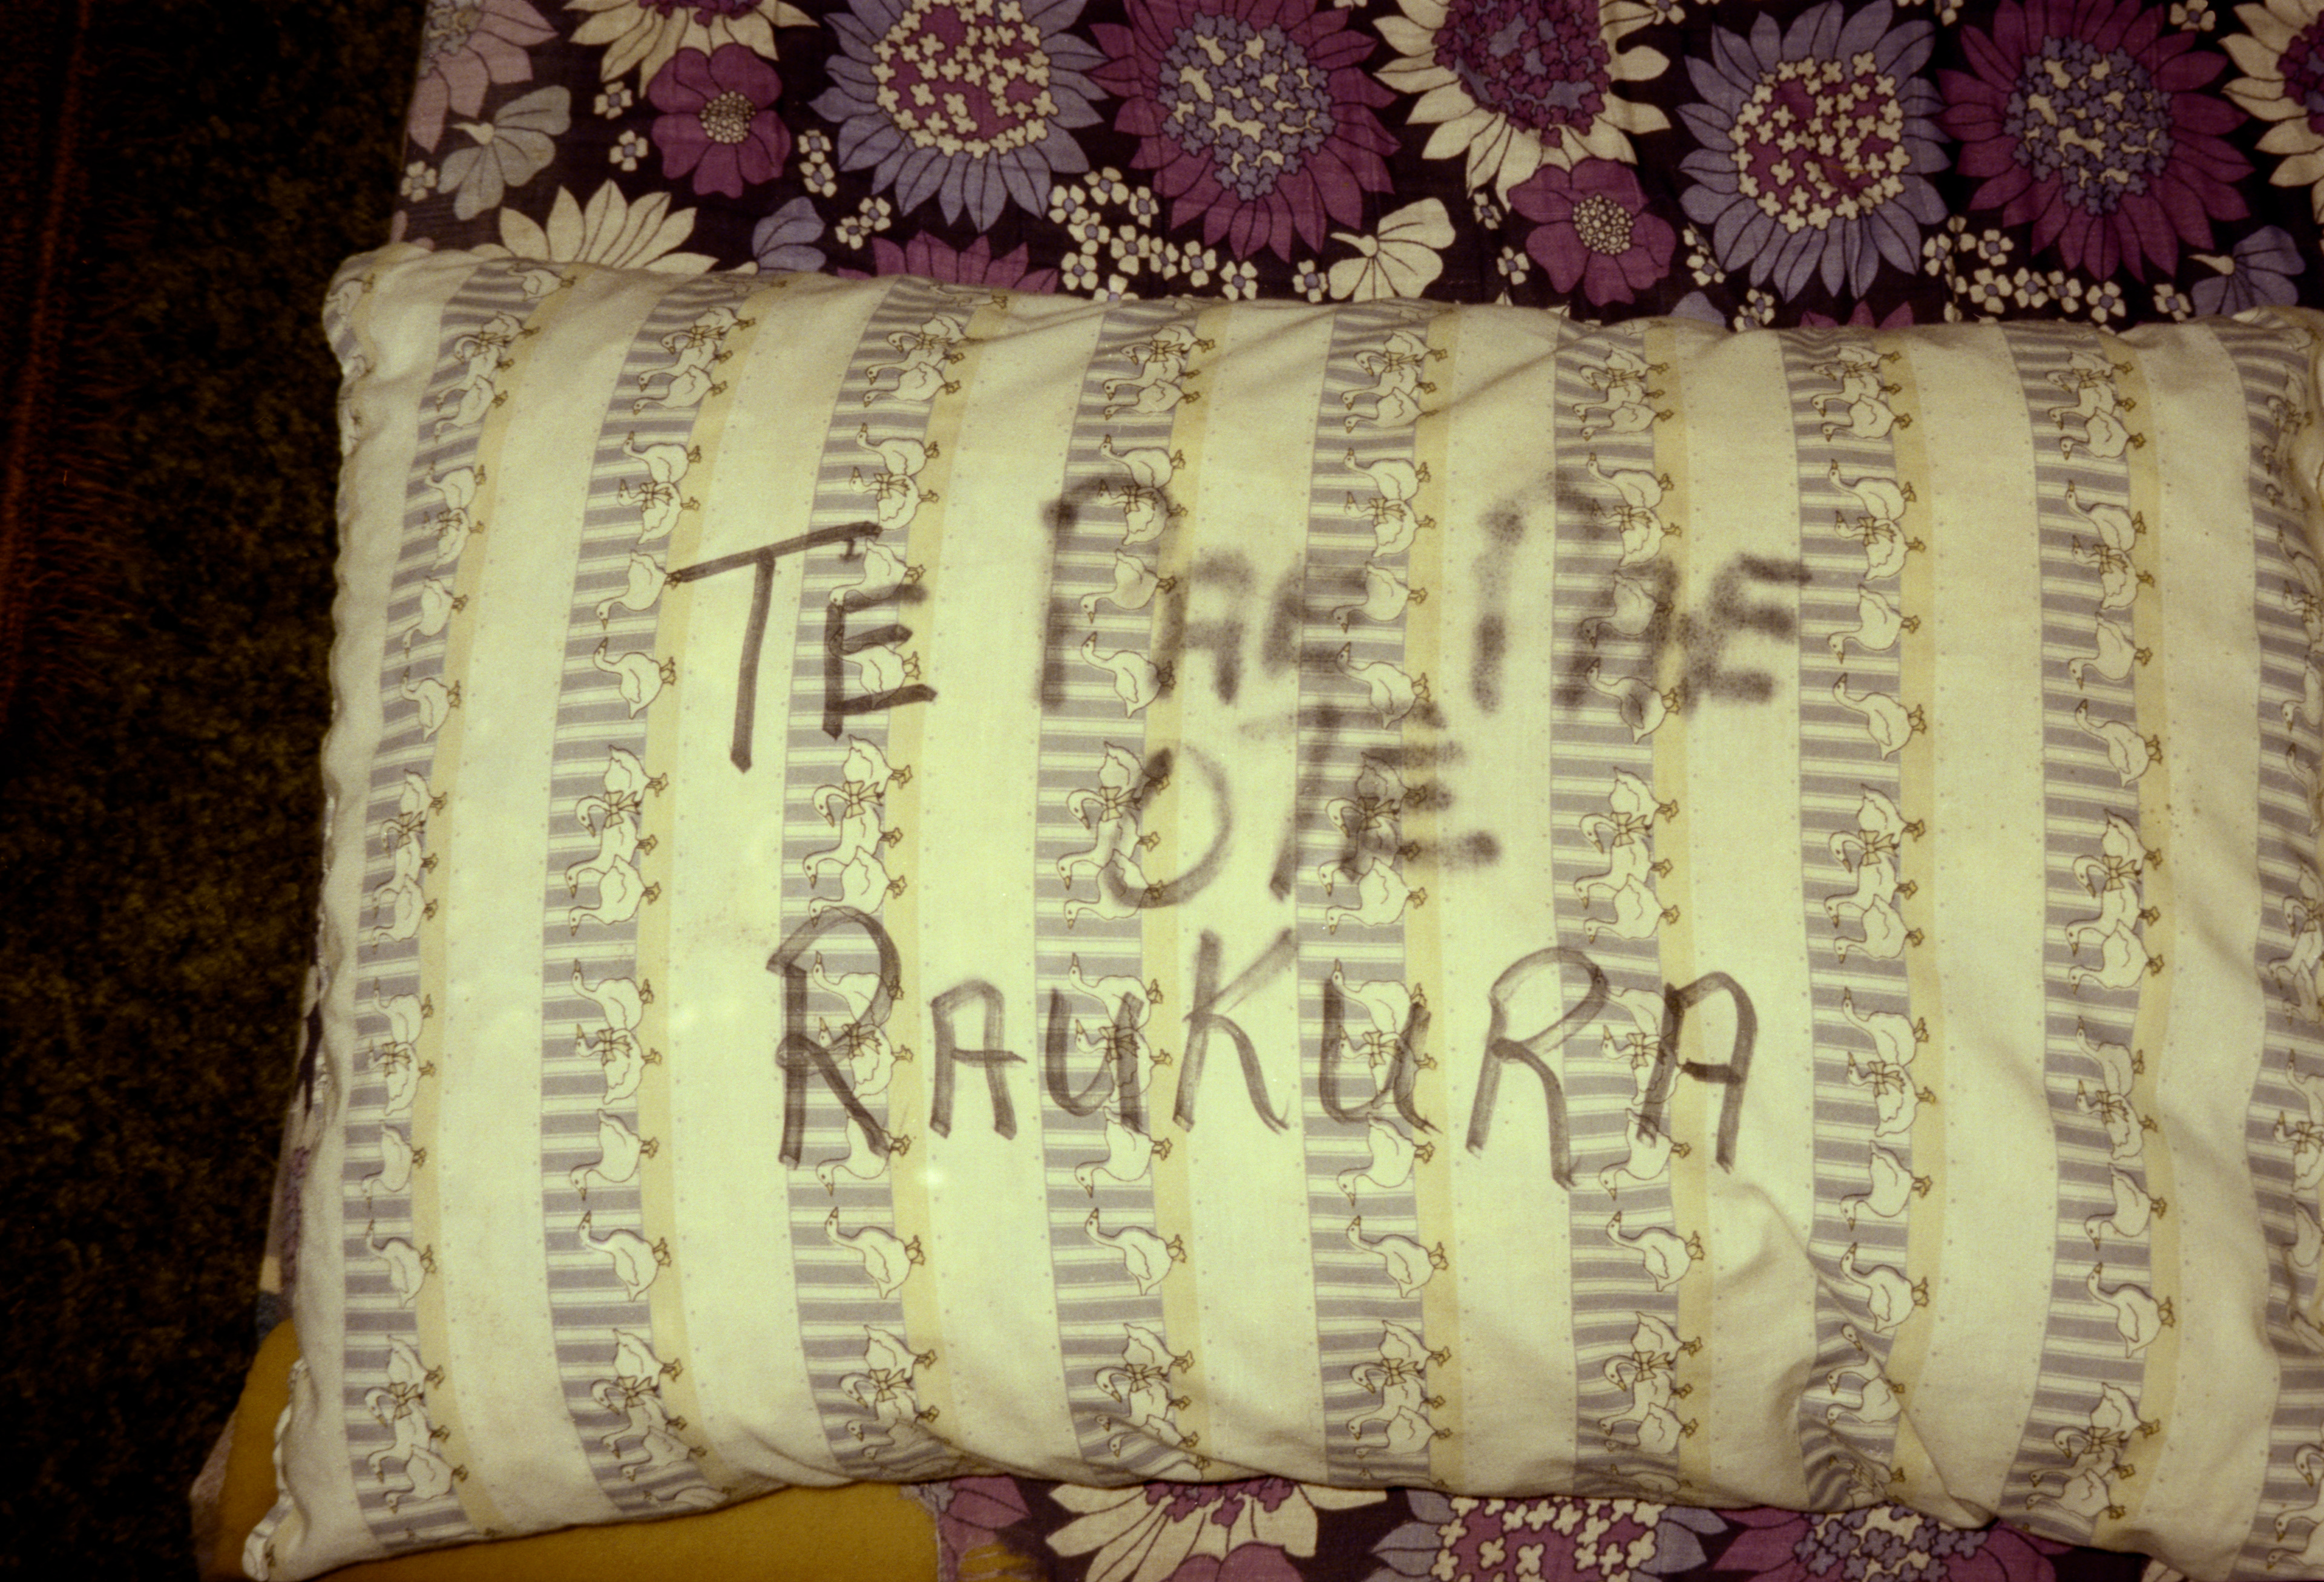 TE PAE PAE
O TE
RAUKURA